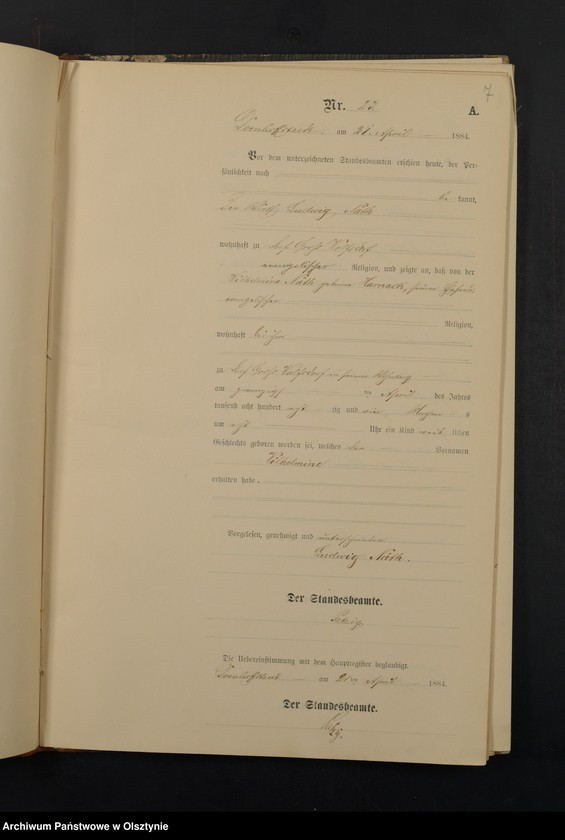 7
Nr. 22.
A.
am 21. April 1884.
Vor dem unterzeichneten Standesbeamten erschien heute, der Per-
sönlichkeit nach
be kannt,
Ludwig Näth
wohnhaft zu Groß
evangelischer Religion, und zeigte an, daß von der
Wilhelmine Näth geborne seiner Ehefrau
evangelischer
Religion,
wohnhaft bei ihm
zu Groß in seiner Wohnung
am zwanzigsten April des Jahres
tausend acht hundert acht zig und vier Morgen s
um acht Uhr ein Kind weib lichen
Geschlechts geboren worden sei, welches den Vornamen
Wilhelmine
erhalten habe.
Vorgelesen, genehmigt und unterschrieben
Ludwig Näth.
Der Standesbeamte.
Die Uebereinstimmung mit dem Hauptregister beglaubigt.
am 21ten April 1884.
Der Standesbeamte.
Archiwum Państwowe w Olsztynie